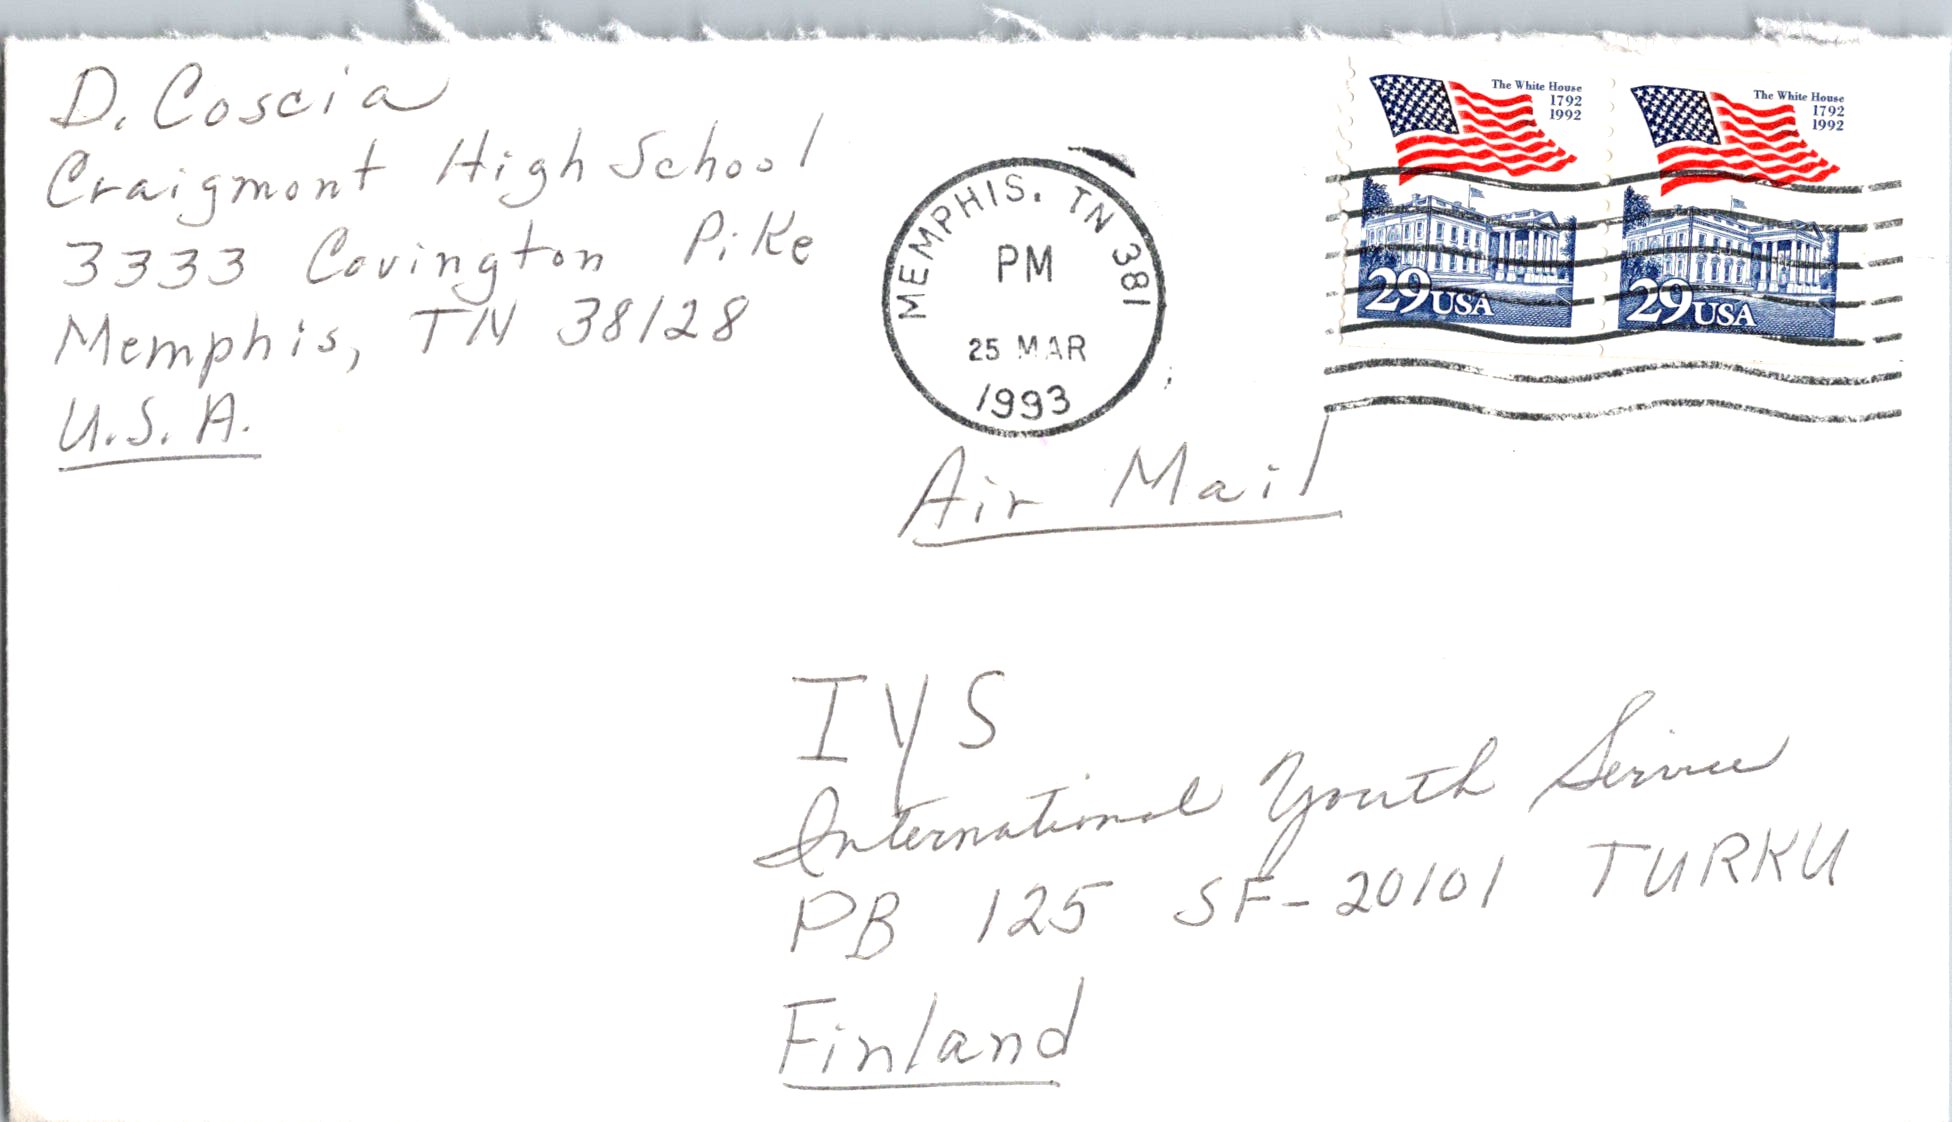 D. Coscia
Craigmont High School
3333 Covington Pike
Memphis, TN 38128
U.S.A.
MEMPHIS, TN 381
PM
25 MAR
1993
The White House
1792
1992
29 USA
The White House
1792
1992
29 USA
Air Mail
IYS
International Youth Service
PB 125 SF-20101 TURKU
Finland